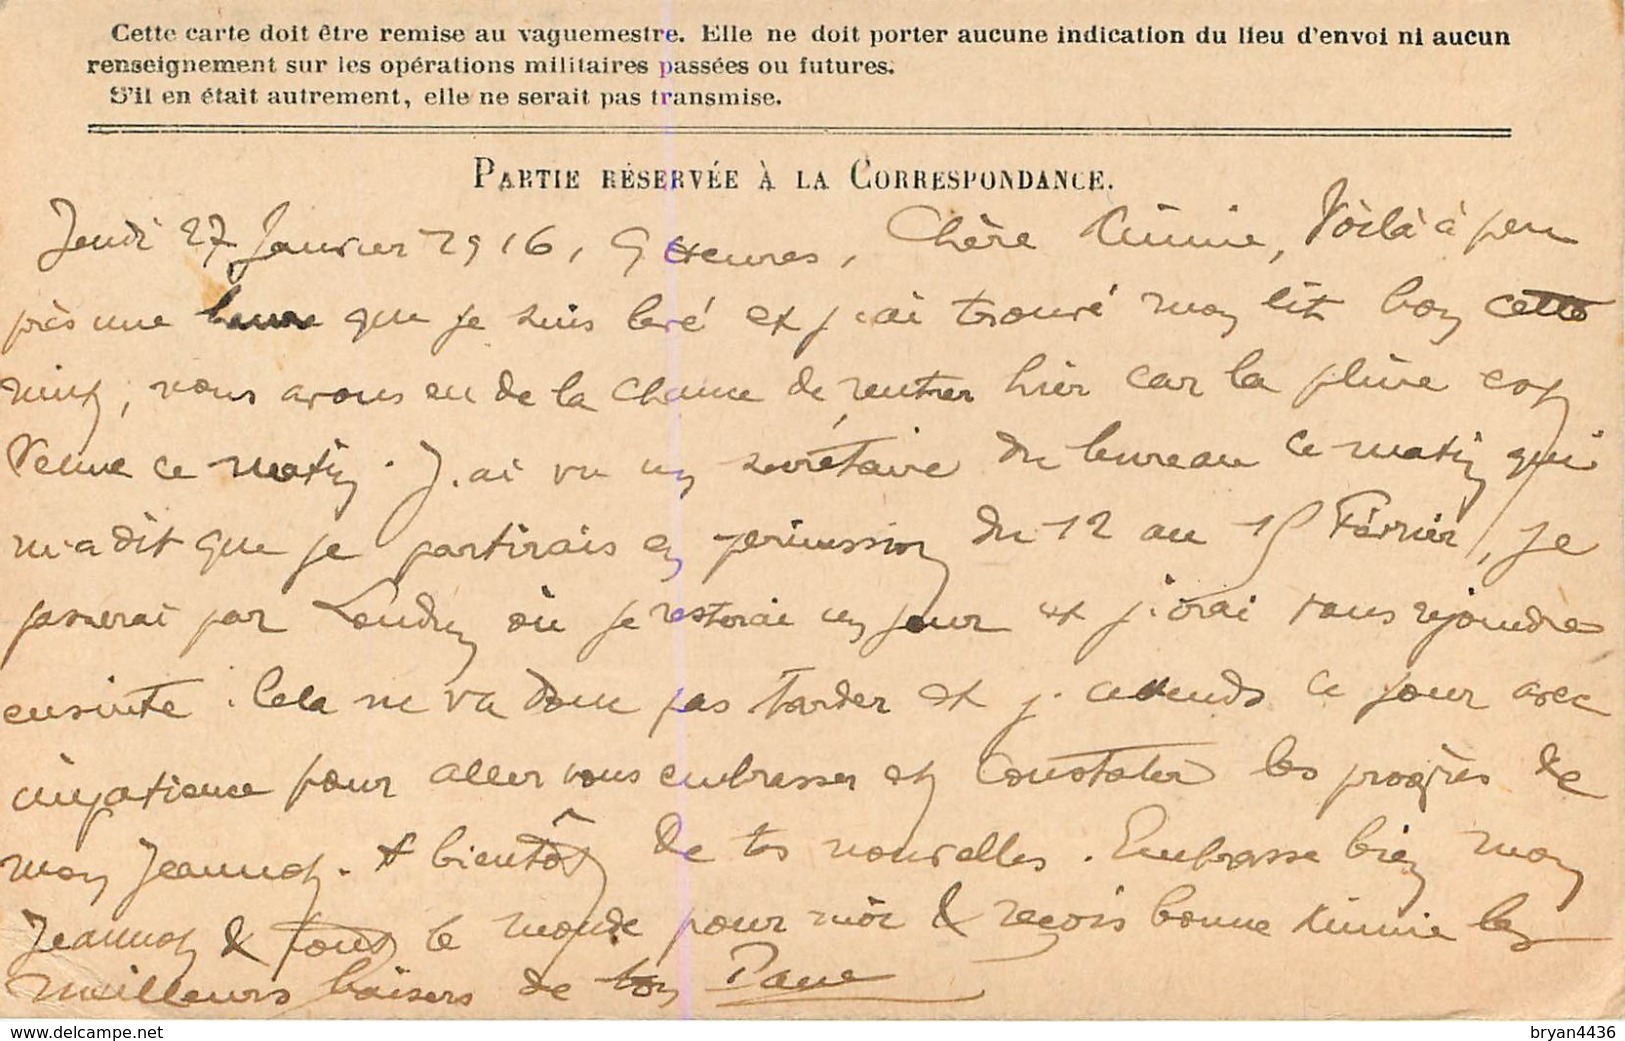 Cette carte doit être remise au vaguemestre. Elle ne doit porter aucune indication du lieu d'envoi ni aucun
renseignement sur les opérations militaires passées ou futures.
S'il en était autrement, elle ne serait pas transmise.
PARTIE RÉSERVÉE À LA CORRESPONDANCE.
Jeudi 27 Janvier 1916, 9 Heures, Chère Mimie, Voilà à peu
près une heure que je suis levé et j'ai trouvé mon lit bon cette
nuit, nous avons eu de la chance de rentrer hier car la pluie est
venue ce matin. J'ai vu un secrétaire du bureau ce matin qui
m'a dit que je partirais en permission du 12 au 15 Février, je
passerai par où je resterai un jour et j'irai vous rejoindre
ensuite. Cela ne va donc pas tarder et j'attends ce jour avec
impatience pour aller vous embrasser et constater les progrès de
mon Jeannot. A bientôt de tes nouvelles. Embrasse bien mon
Jeannot & tout le monde pour moi & reçois bonne Mimie les
meilleurs baisers de ton
www.delcampe.net
bryan4436